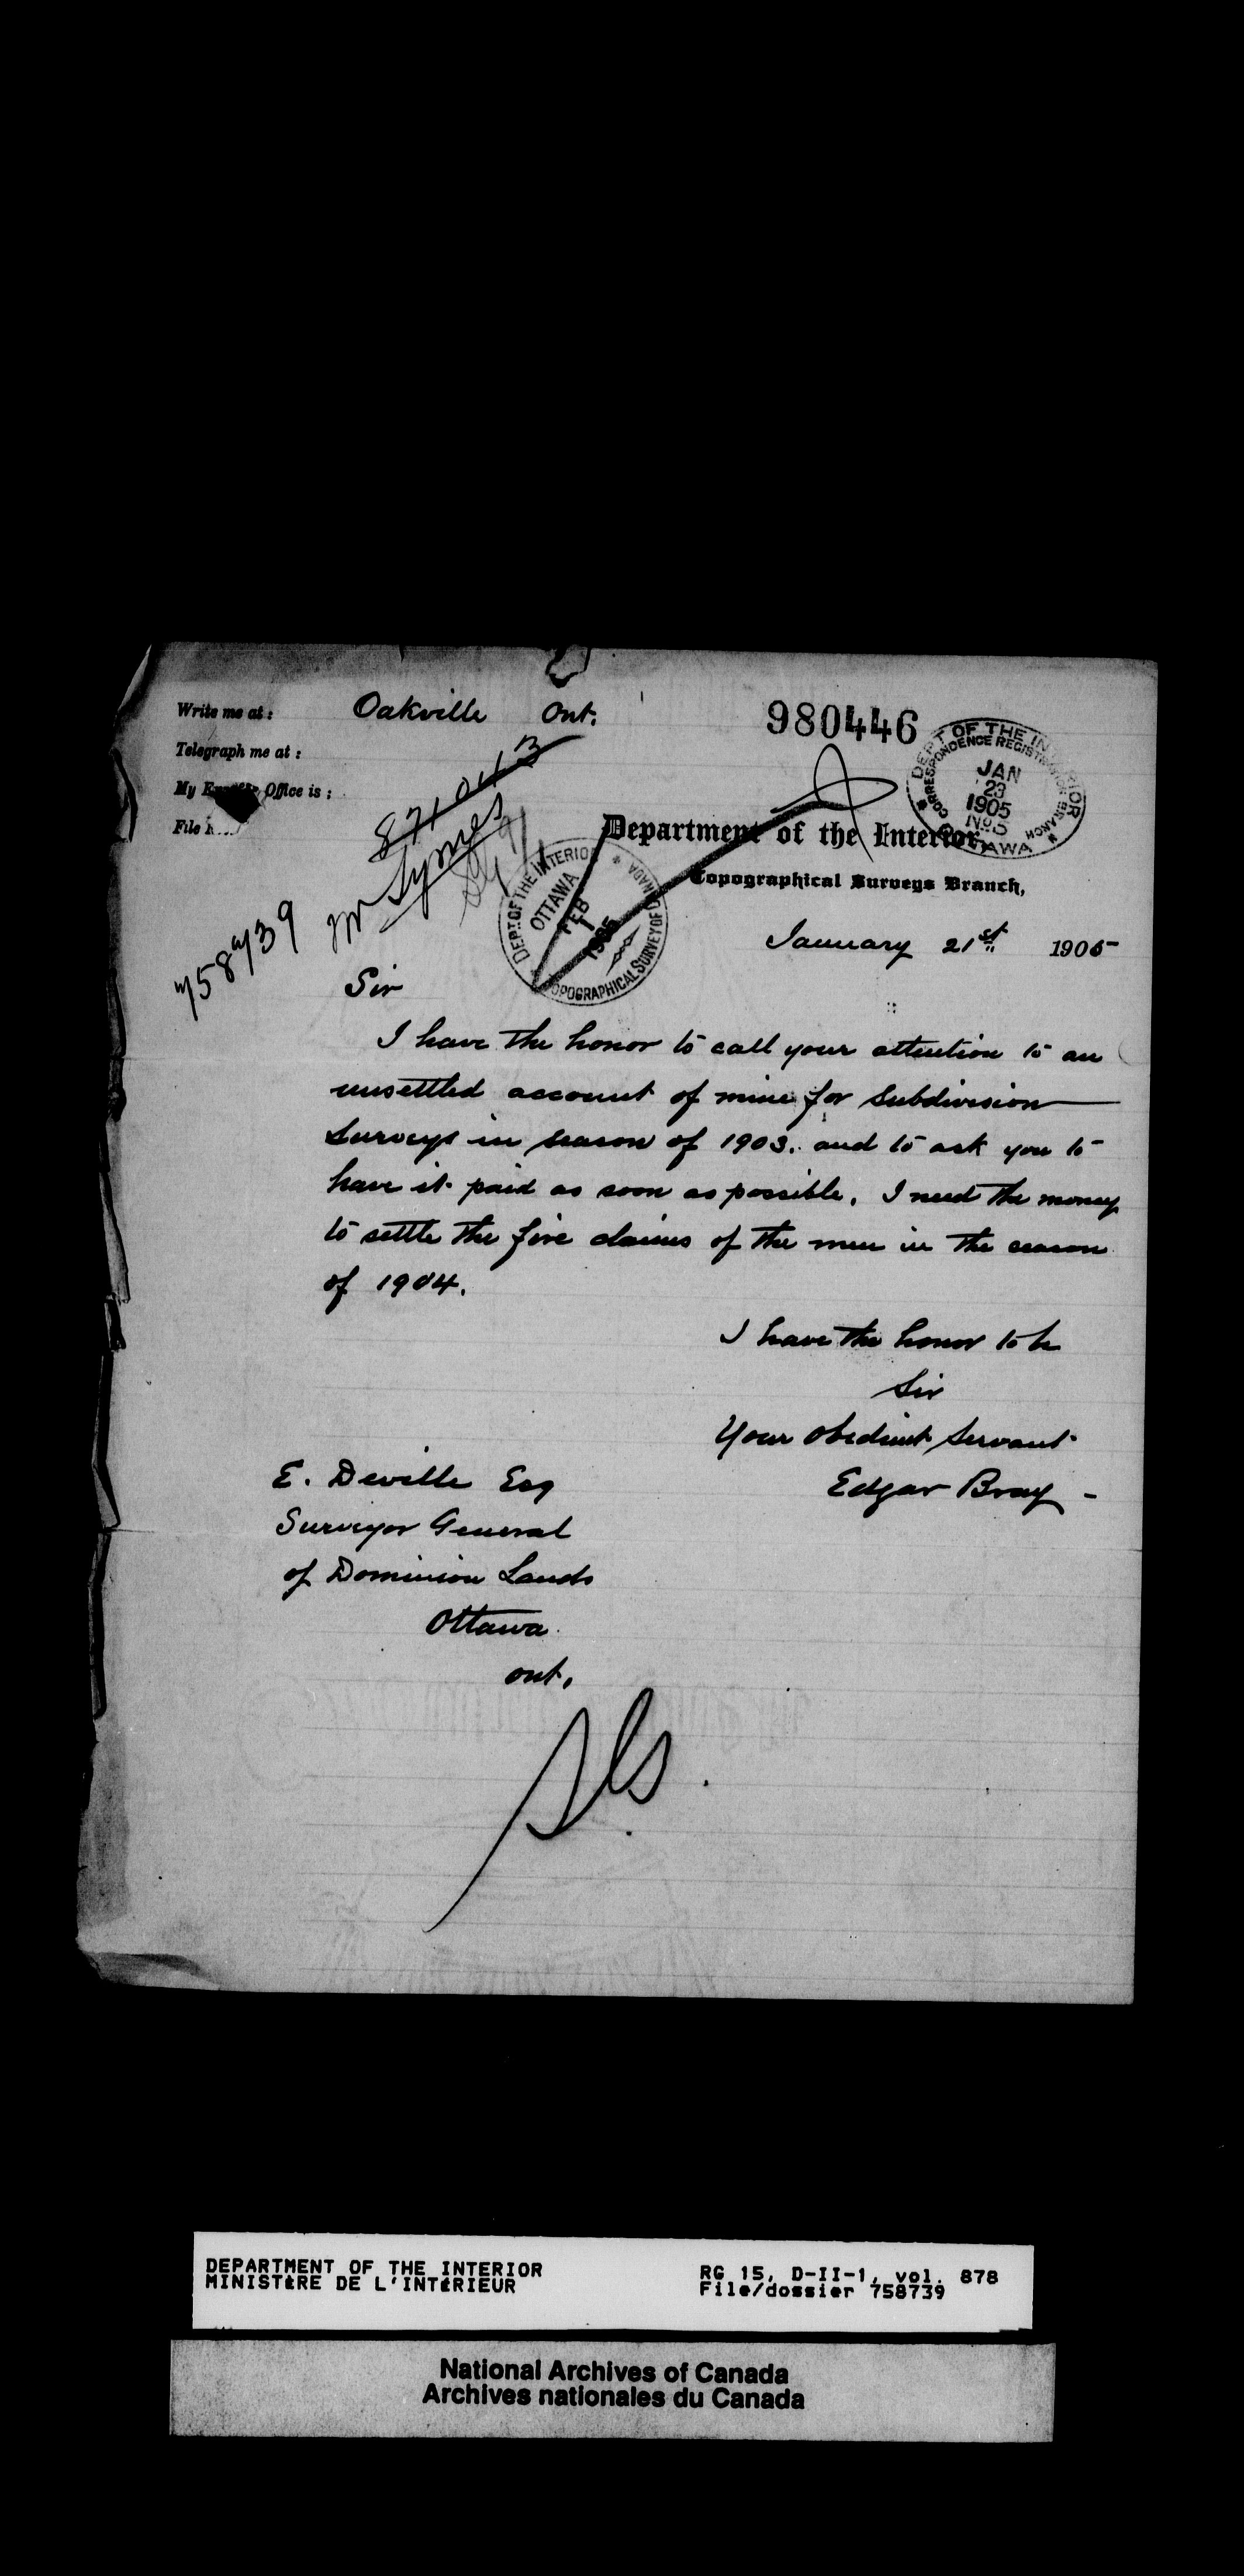 Write me at: Oakville Ont.
980446
Telegraph me at:
My Office is:
File
871043
Mr Symes
758739
DEPT. OF THE INTERIOR
CORRESPONDENCE REGISTRATION BRANCH
JAN
23
1905
No. 5
OTTAWA
Department of the Interior,
Topographical Surveys Branch,
DEPT. OF THE INTERIOR
OTTAWA
FEB
1
1905
TOPOGRAPHICAL SURVEY OF CANADA
January 21st 1905
Sir
I have the honor to call your attention to an
unsettled account of mine for Subdivision
Surveys in season of 1903. and to ask you to
have it paid as soon as possible. I need the money
to settle the five claims of the men in the season
of 1904.
I have the honor to be
Sir
Your obedient Servant
Edgar Bray -
E. Deville Esq
Surveyor General
of Dominion Lands
Ottawa
Ont.
DEPARTMENT OF THE INTERIOR
MINISTÈRE DE L'INTÉRIEUR
RG 15, D-II-1, vol. 878
File/dossier 758739
National Archives of Canada
Archives nationales du Canada